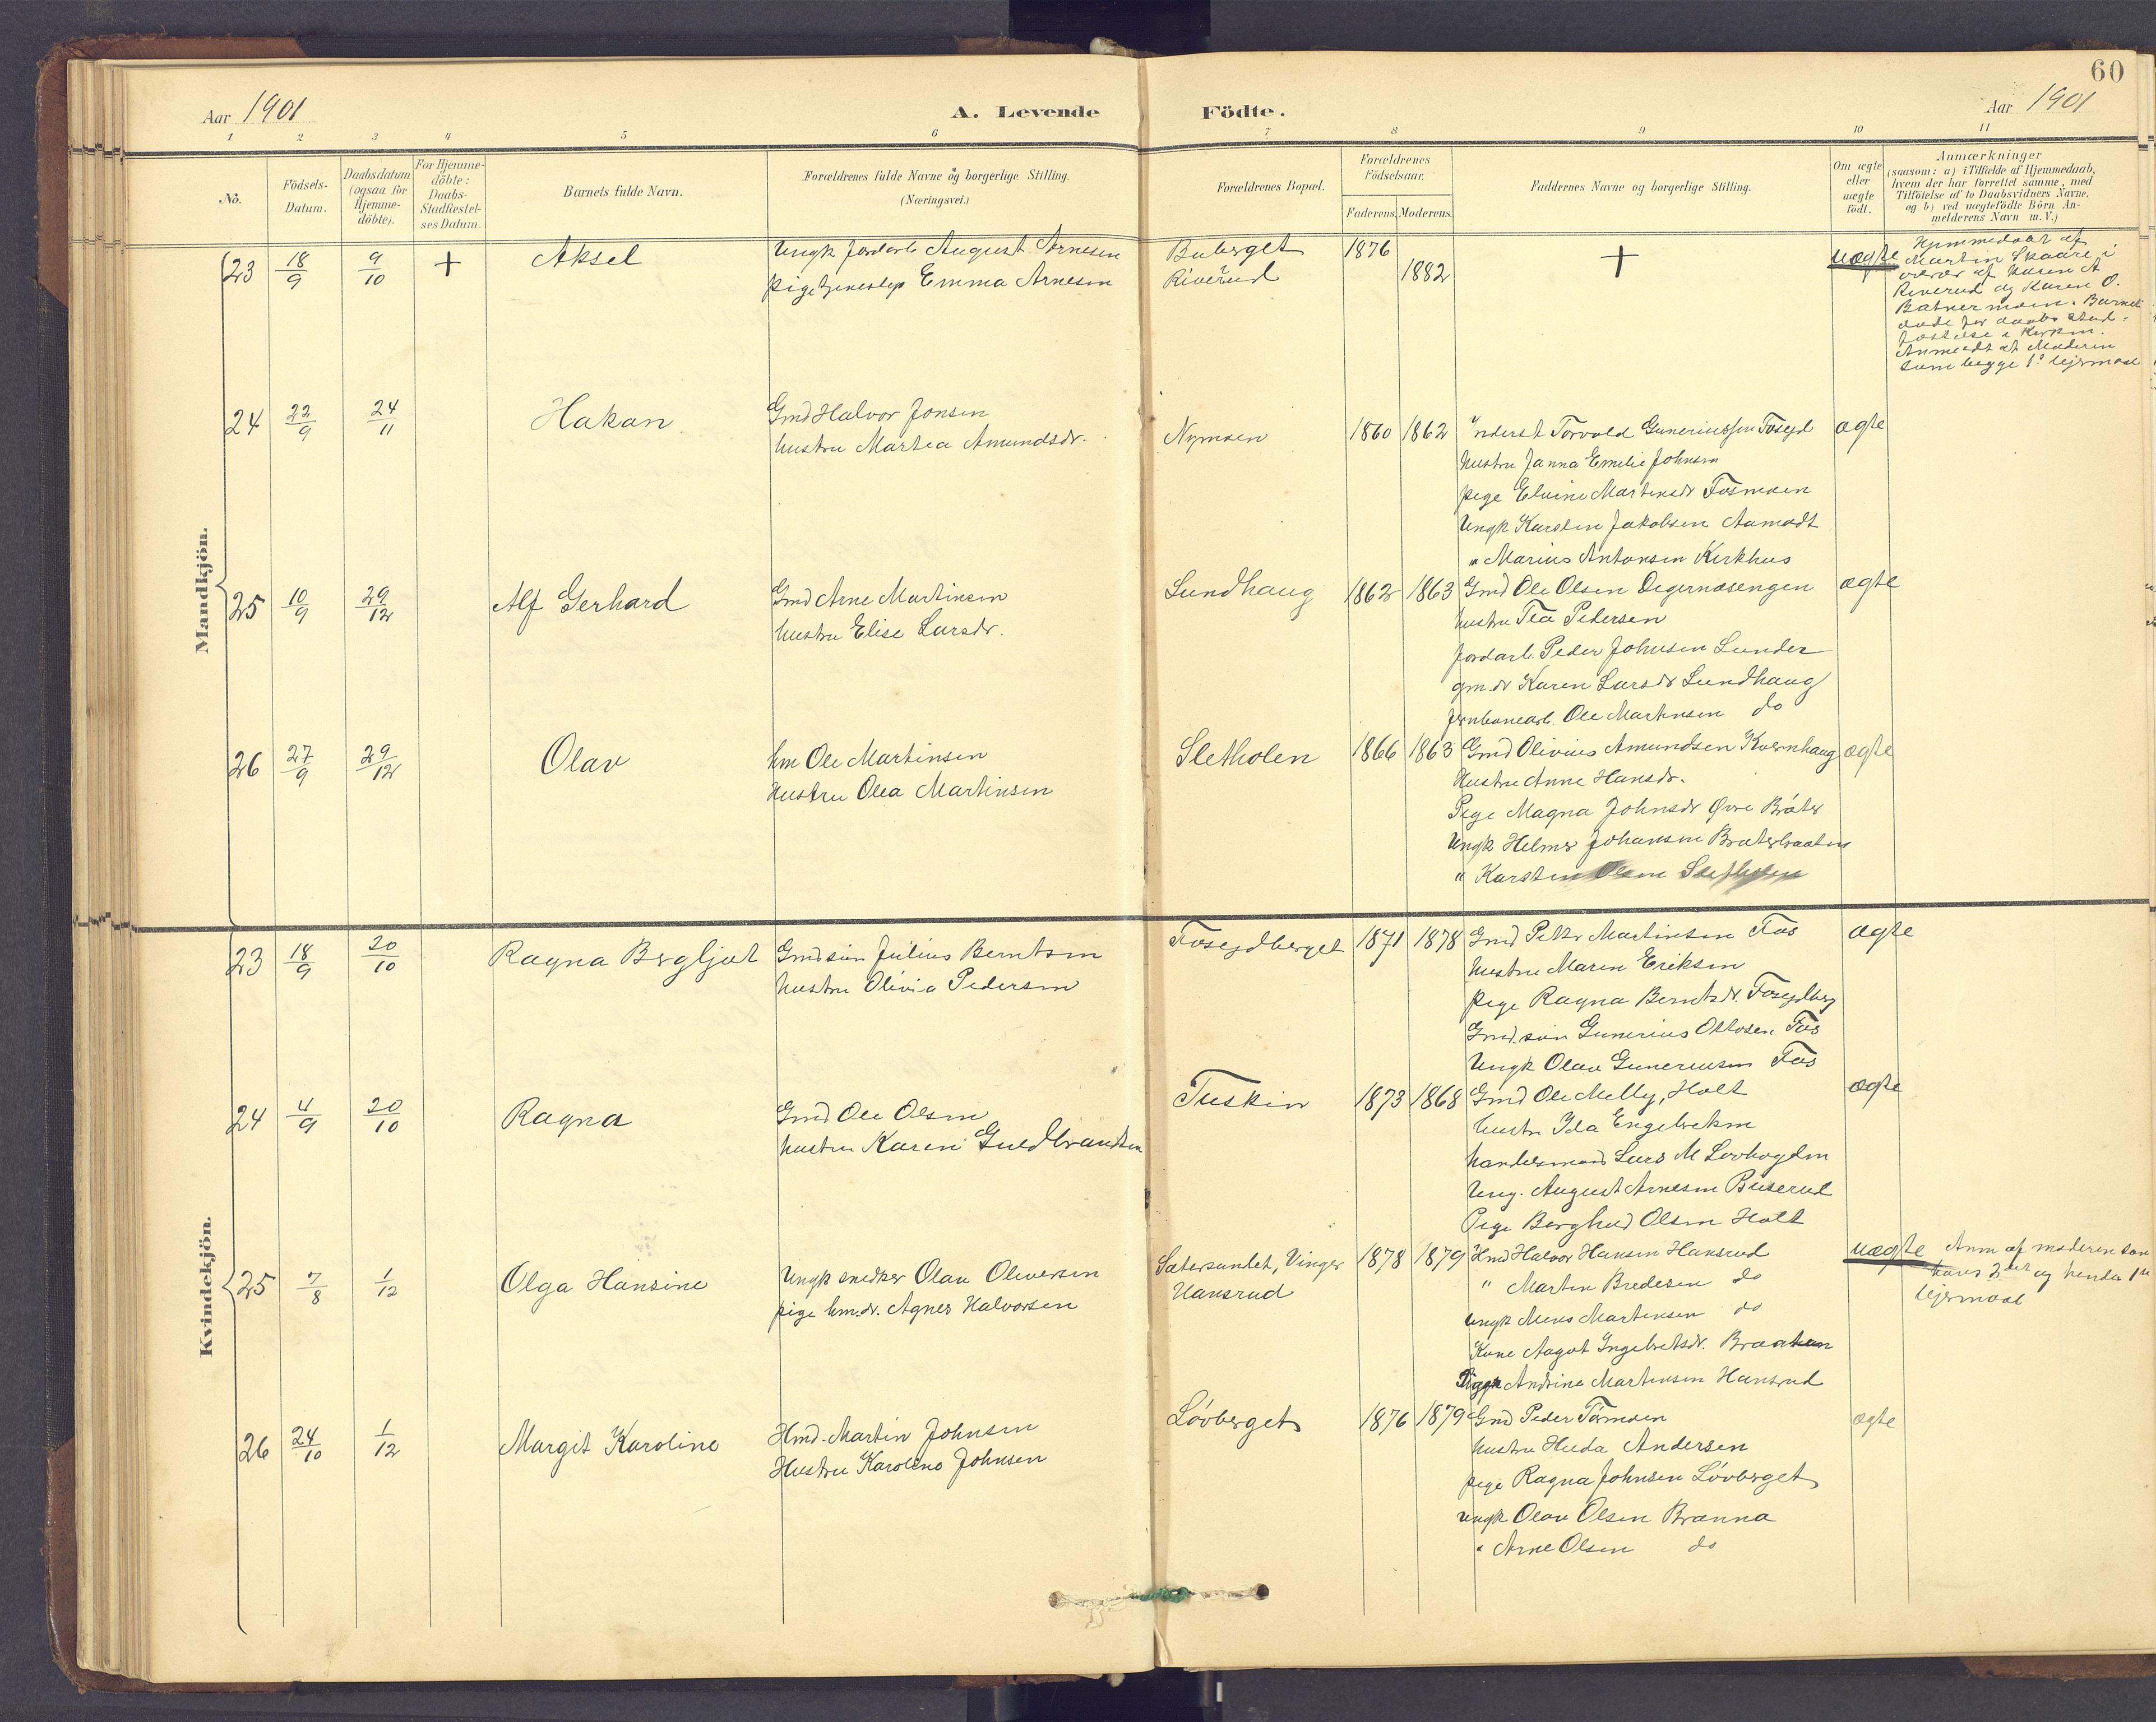 60
Aar 1901
A. Levende Födte.
Aar 1901
1 2 3 4 5 6 7 8 9 10 11
No.
Födsels-Datum.
Daabsdatum (ogsaa for Hjemme-döbte).
For Hjemme-döbte: Daabs-Stadfæstel-ses Datum.
Barnets fulde Navn.
Forældrenes fulde Navne og borgerlige Stilling.
(Næringsvei.)
Forældrenes Bopæl.
Forældrenes Födselsaar.
Faderens. Moderens.
Faddernes Navne og borgerlige Stilling.
Om ægte eller uægte födt.
Anmærkninger
(saasom: a) i Tilfælde af Hjemmedaab,
hvem der har forrettet samme, med
Tilföielse af to Daabsvidners Navne,
og b) ved uægtefödte Börn An-
melderens Navn m. V.)
Mandkjön.
23 18/9 9/10 + Aksel Ungk jordarb August Arnesen Buberget 1876 + uægte Hjemmedøbt af
pige Emma Arnesen Riverud 1882 Martin Skaare i
overvær af Hasen A
Riverud og Karen O.
Batnermoen. Barnet
døde før daabs stad-
fæstelse i Kirken.
Anmeldt af Moderen
som begge 1ste lejermaal
24 22/9 24/11 Hakan Gmd Halvor Jonsen Nymoen 1860 1862 Inderst Torvald Guneriussen Foseyd ægte
hustru Martea Amundsdr.
hustru Janna Emilie Johnsen
pige Elvine Martinsdr Fosmoen
Ungk Karsten Jakobsen Aamodt
" Marius Antonsen Kirkhus
25 10/9 29/12 Alf Gerhard Gmd Arne Martinsen Lundhaug 1862 1863 Gmd Ole Olsen Degernæsengen ægte
hustru Elise Larsdr.
hustru Tea Pedersen
Jordarb. Peder Johnsen Lunder
gm.dr Karen Larsdr Lundhaug
jernbanearb. Ole Martinsen do
26 27/9 29/12 Olav hm Ole Martinsen Sletholen 1866 1863 Gmd Olivius Amundsen Kvernhaug ægte
Hustru Olea Martinsen
Hustru Anne Hansdr.
Pige Magna Johnsdr Øvre Bråter
Ungk Helmer Johansen Braterbraaten
" Karsten Olsen Sletholen
Kvindekjön.
23 18/9 20/10 Ragna Bergljot Gmdsøn Julius Berntsen Foseydberget 1871 1878 Gmd Petter Martinsen Fos ægte
hustru Olivia Pedersen
hustru Maren Eriksen
pige Ragna Berntsdr. Foseydberg
Gmd.søn Gunerius Ottosen Fos
Ungk Olav Guneriussen Fos
24 4/9 20/10 Ragna Gmd Ole Olsen Tuskin 1873 1868 Gmd Ole Melby, Holt ægte
hustru Karen Guldbrandsen
hustr Ida Engebretsen
handelsmand Lars M Lovhogden
Ung. August Arnesen Buserud
Pige Borghild Olsen Holt
25 7/8 1/12 Olga Hansine Ungk snedker Olav Oliversen Sætersambet, Vinger 1878 1879 Hmd Halvor Hansen Hansrud uægte Anm af moderen som
pige hm.dr. Agnes Halvorsen Hansrud
hans 2det og hendes 1ste
lejermaal
" Martin Bredesen do
ungk Mens Martinsen do
Kone Aagot Ingebretsdr. Braaten
Pige Andrine Martinsen Hansrud
26 24/10 1/12 Margit Karoline Hmd. Martin Johnsen Lövberget 1876 1879 Gmd Peder Tormoen ægte
Hustru Karoline Johnsen
hustru Hilda Andersen
pige Ragna Johnsen Lövberget
ungk Olav Olsen Branna
" Arne Olsen do